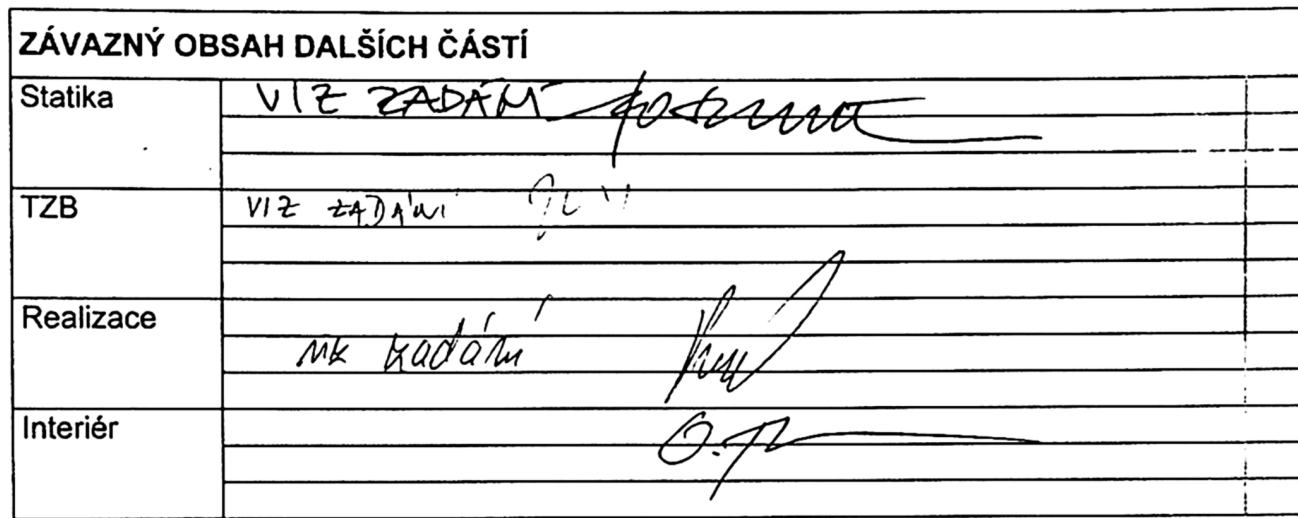 ZÁVAZNÝ OBSAH DALŠÍCH ČÁSTÍ
Statika VIZ ZADÁNÍ
TZB VIZ ZADÁNÍ
Realizace viz zadání
Interiér